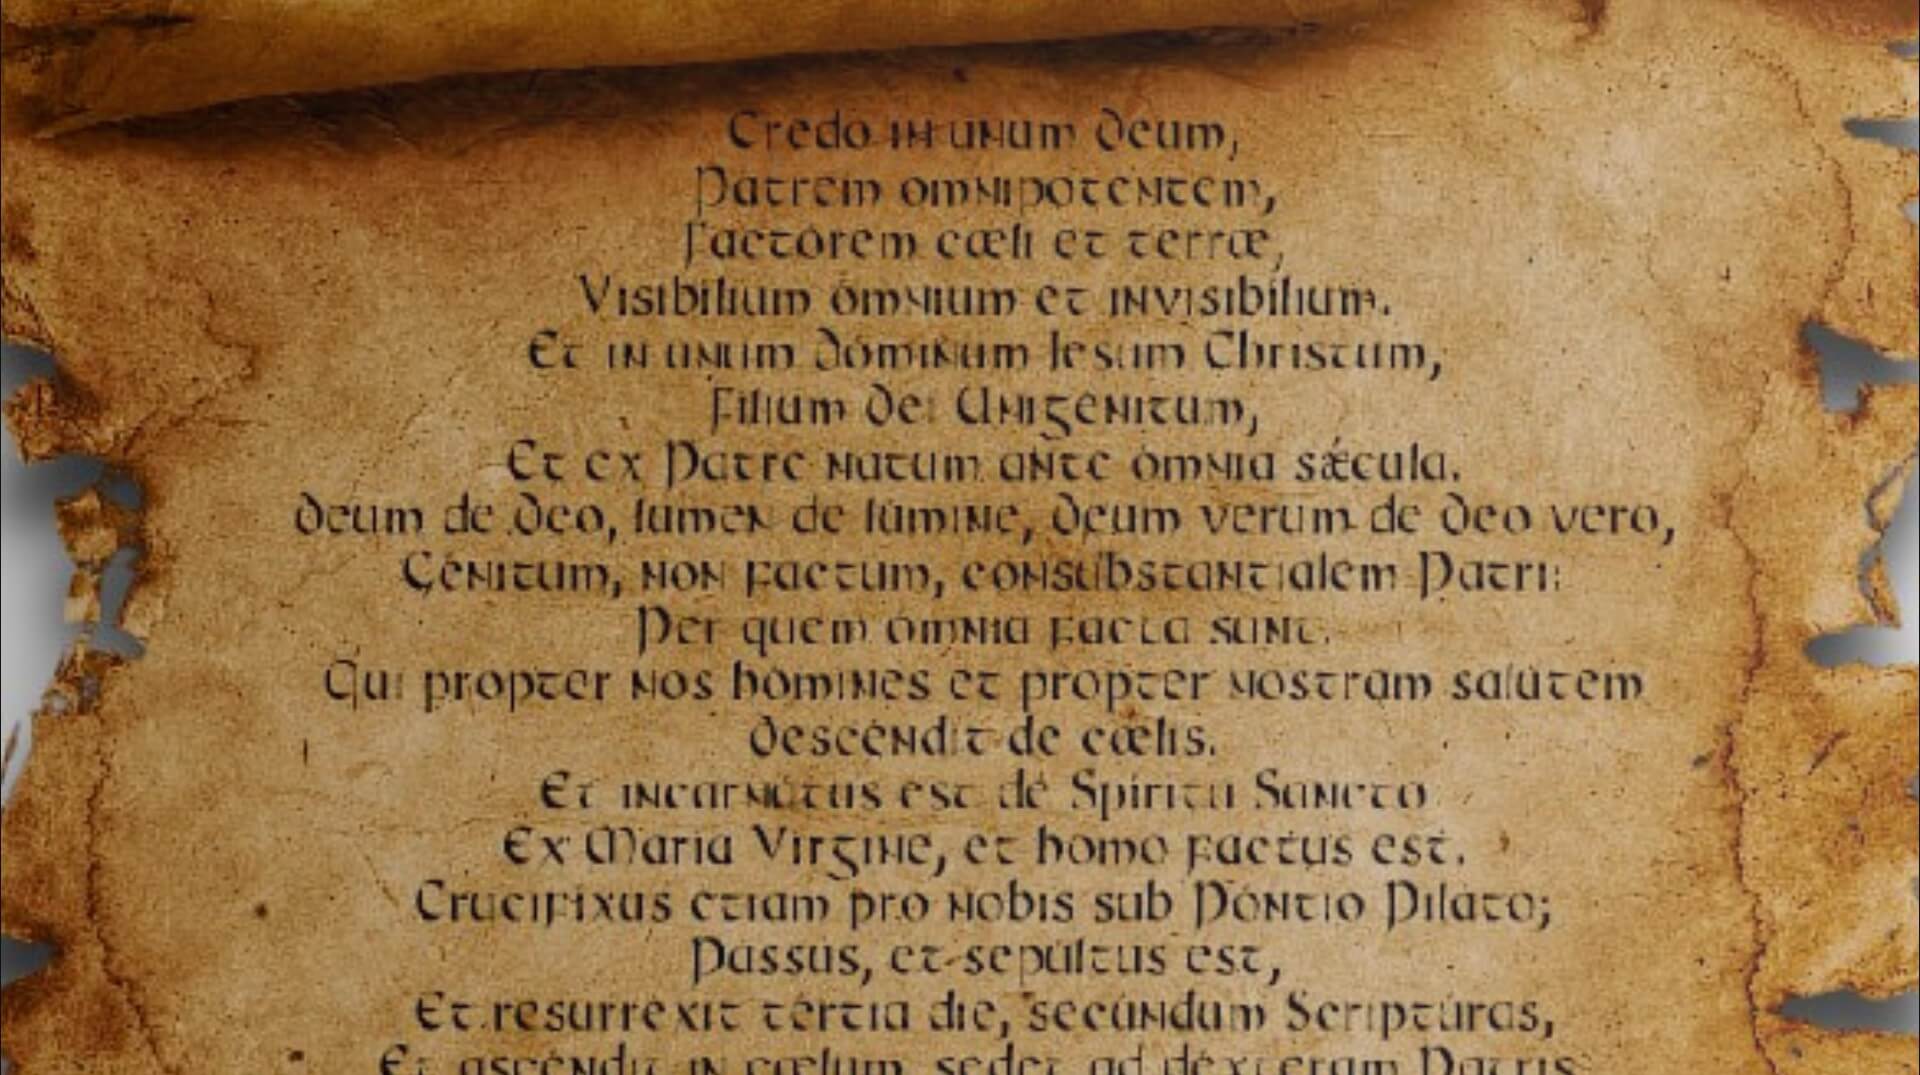 Credo in unum Deum,
Patrem omnipoténtem,
Factórem cæli et terræ,
Visibílium ómnium et invisibílium.
Et in unum Dóminum Iesum Christum,
Fílium Dei Unigénitum,
Et ex Patre natum ante ómnia sǽcula.
Deum de Deo, lumen de lúmine, Deum verum de Deo vero,
Génitum, non factum, consubstantialem Patri:
Per quem ómnia facta sunt.
Qui propter nos hómines et propter nostram salútem
Descéndit de cælis.
Et incarnátus est de Spíritu Sancto
Ex María Vírgine, et homo factus est.
Crucifíxus étiam pro nobis sub Póntio Piláto;
Passus, et sepúltus est,
Et resurréxit tértia die, secúndum Scriptúras,
Et ascéndit in cælum, sedet ad déxteram Patris